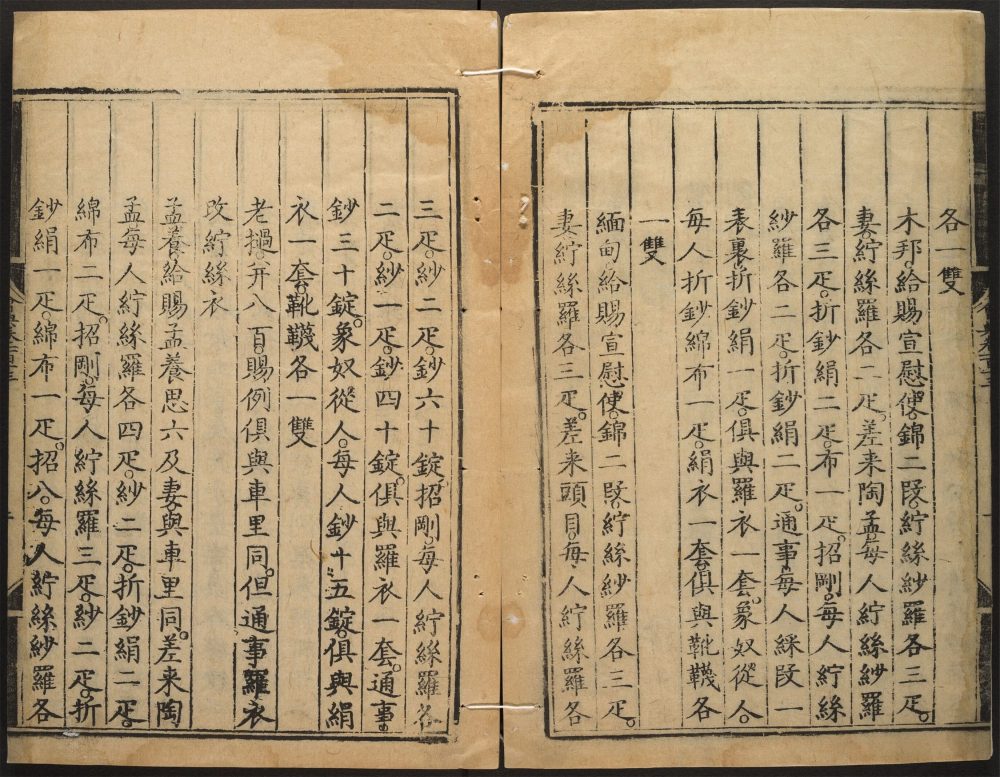 各一雙
木邦。給賜宣慰使。錦二段。紵絲紗羅各三疋。
妻。紵絲羅各二疋。差来陶孟每人紵絲紗羅
各三疋。折鈔絹二疋。布一疋。招剛。每人紵絲
紗羅各二疋。折鈔絹二疋。通事。每人綵段一
表裏。折鈔絹一疋。俱與羅衣一套。象奴從人。
每人折鈔綿布一疋。絹衣一套。俱與靴韈各
一雙
緬甸給賜宣慰使。錦二段。紵絲紗羅各三疋。
妻紵絲羅各三疋。差来頭目。每人紵絲羅各
三疋。紗二疋。鈔六十錠。招剛。每人紵絲羅各
二疋。紗一疋。鈔四十錠。俱與羅衣一套。通事。
鈔三十錠。象奴從人。每人鈔十五錠。俱與絹
衣一套。靴韈各一雙
老撾。并八百。賜例俱與車里同。但通事羅衣
改紵絲衣
孟養給賜孟養思六及妻。與車里同。差来陶
孟。每人紵絲羅各四疋。紗二疋。折鈔絹二疋。
綿布二疋。招剛。每人紵絲羅三疋。紗二疋。折
鈔絹一疋。綿布一疋。招八。每人紵絲紗羅各